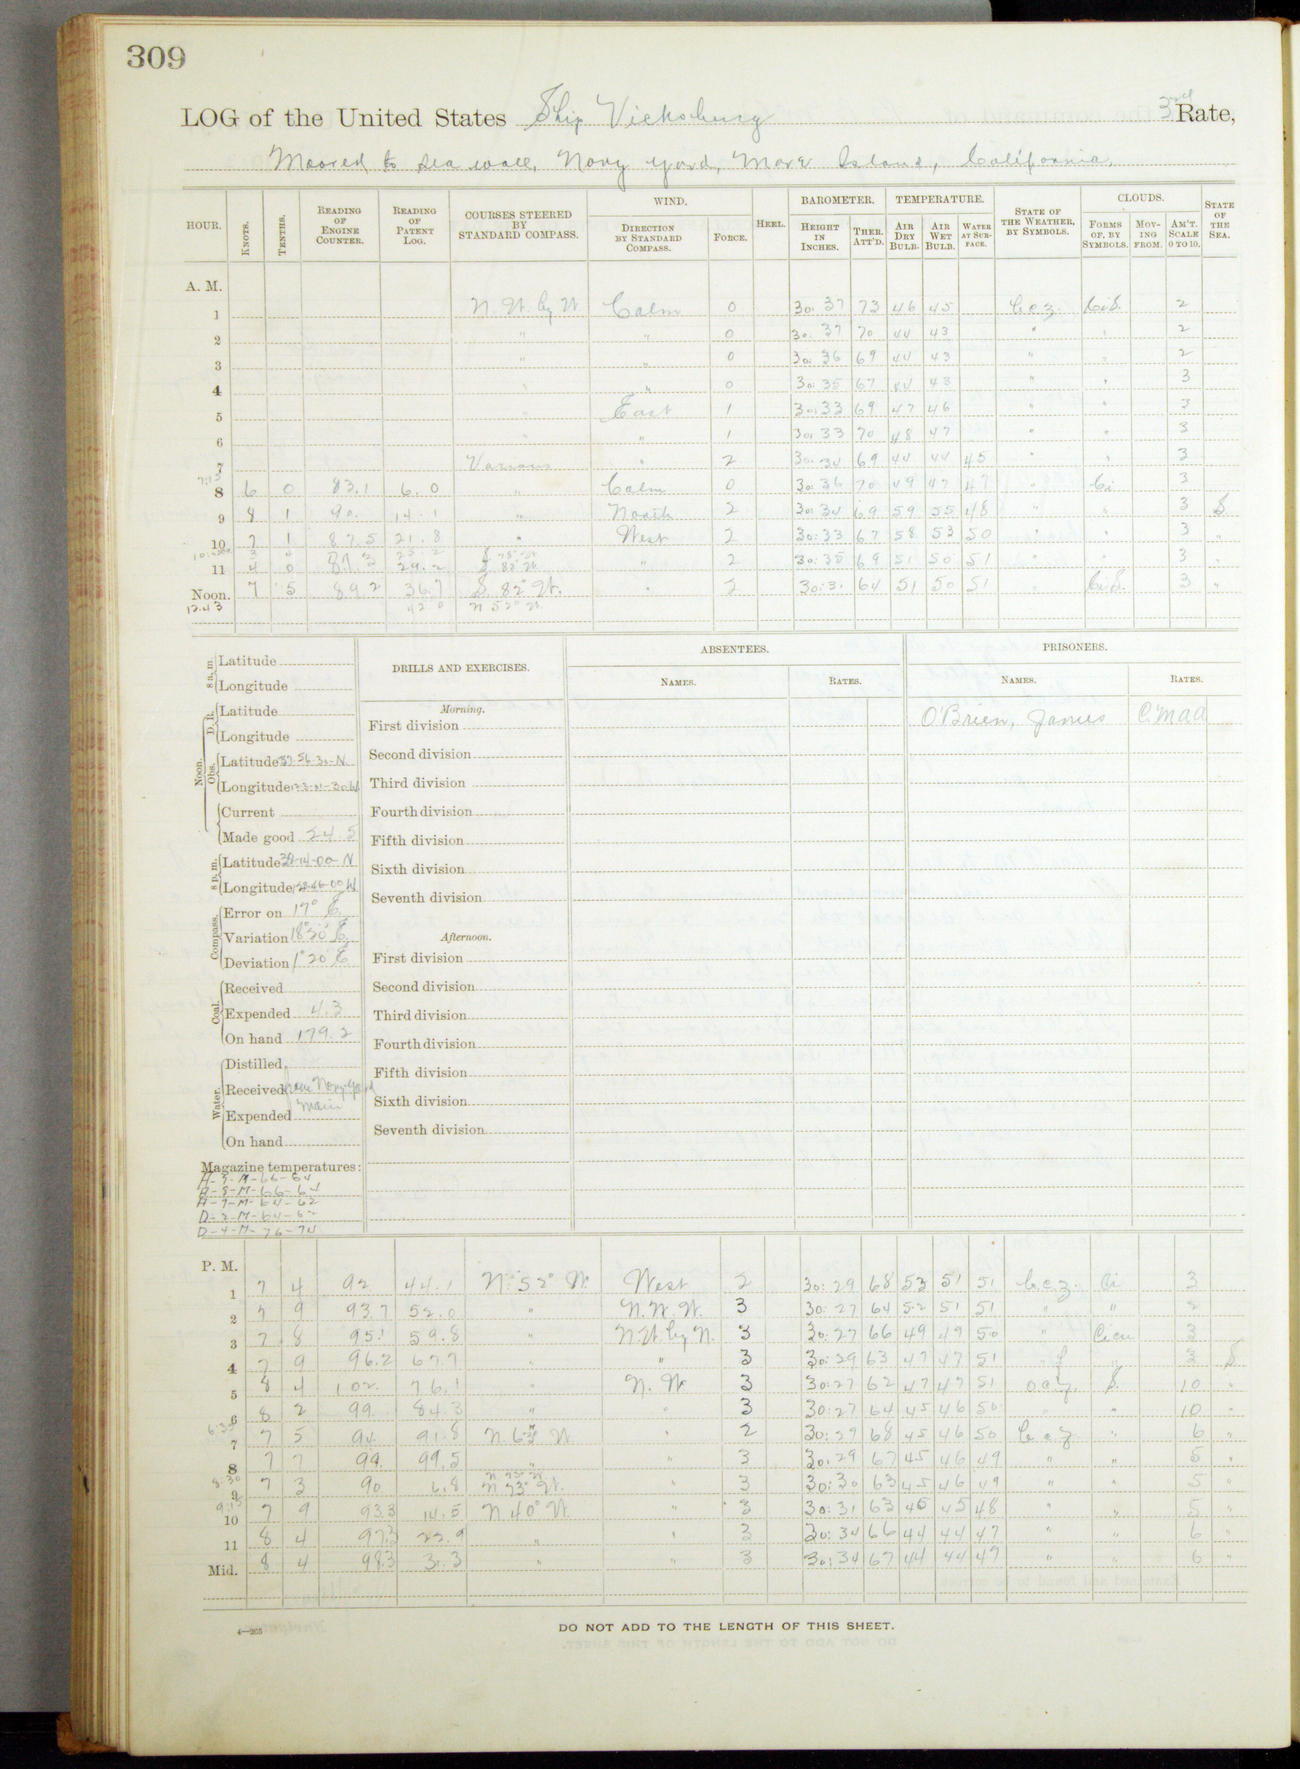 309
LOG of the United States Ship Vicksburg 3rd Rate,
Moored to sea wall, Navy yard, Mare Island, California.
HOUR. KNOTS. TENTHS. READING OF ENGINE COUNTER. READING OF PATENT LOG. COURSES STEERED BY STANDARD COMPASS. WIND. DIRECTION BY STANDARD COMPASS. FORCE. HEEL. BAROMETER. HEIGHT IN INCHES. THER. ATT'D. TEMPERATURE. AIR DRY BULB. AIR WET BULB. WATER AT SURFACE. STATE OF THE WEATHER, BY SYMBOLS. CLOUDS. FORMS OF, BY SYMBOLS. MOVING FROM. AM'T. SCALE 0 TO 10. STATE OF THE SEA.
A. M.
1 N. W. by W Calm 0 30.37 73 46 45 b.c.z. Ci.S. 2
2 " " 0 30.37 70 44 43 " " 2
3 " " 0 30.36 69 44 43 " " 2
4 " " 0 30.35 67 44 43 " " 3
5 " East 1 30.33 69 47 46 " " 3
6 " " 1 30.33 70 48 47 " " 3
7 Various " 2 30.34 69 44 44 45 " " 3
7:15
8 6 0 83.1 6.0 " Calm 0 30.36 70 49 47 47 " Ci. 3
9 8 1 90. 14.1 " North 2 30.34 69 59 55 48 " " 3 S
10 7 1 87.5 21.8 " West 2 30:33 67 58 53 50 " " 3 "
11 4 0 87.3 29.2 " 2 30:35 69 51 50 51 " 3 "
Noon. 7 5 89.2 36.7 S. 82° W. " 2 64 51 50 51 " Ci.S. 3 "
12.43 42 0 N 52° W.
8 a. m. Latitude
Longitude
Noon. D. R. Latitude
Longitude
Obs. Latitude 37-56-30-N
Longitude
Current
Made good 54.5
8 p. m. Latitude 38-14-00 N
Longitude
Compass. Error on 17° E.
Variation E.
Deviation 1° 20' E
Coal. Received
Expended 4.3
On hand 179.2
Water. Distilled
Received from Navy Yard
Main
Expended
On hand
Magazine temperatures:
A-3-M-66-64
A-7-M-64-62
D-4-M-76-74
DRILLS AND EXERCISES.
Morning.
First division
Second division
Third division
Fourth division
Fifth division
Sixth division
Seventh division
Afternoon.
First division
Second division
Third division
Fourth division
Fifth division
Sixth division
Seventh division
ABSENTEES.
NAMES. RATES.
PRISONERS.
NAMES. RATES.
O'Brien, James C.M.A.A.
P. M.
1 7 4 92 44.1 N. 52° W. West 2 30:29 68 53 51 51 b.c.z. Ci 3
2 7 9 93.7 52.0 " N. W. W. 3 30:27 64 52 51 51 " "
3 7 8 95.1 59.8 " N.W. by N. 3 30:27 66 49 49 50 " Ci.cu 3
4 7 9 96.2 67.7 " " 3 30:29 63 47 47 51 " 3 S
5 8 4 102. 76.1 " N. W 3 30:27 62 47 47 51 o.c.z. S. 10 "
6 8 2 99. 84.3 " " 3 30:27 64 45 46 50 " " 10
6:35
7 7 5 94. 91.8 " 2 30:29 68 45 46 50 b.c.z. " 6 "
8 7 7 99. 99.5 " " 3 30.29 67 45 46 49 " " 5 "
8:30
9 7 3 90 6.8 N 73° W. " 3 30:30 63 45 46 49 " " 5 "
9:15
10 7 9 93.3 14.5 N. 40° W. " 3 30:31 63 45 45 48 " " 5 "
11 8 4 97.3 22.9 " " 3 30:34 66 44 44 47 " " 6 "
Mid. 8 4 98.3 31.3 " " 3 30:34 67 44 44 47 " " 6 "
4—265
DO NOT ADD TO THE LENGTH OF THIS SHEET.